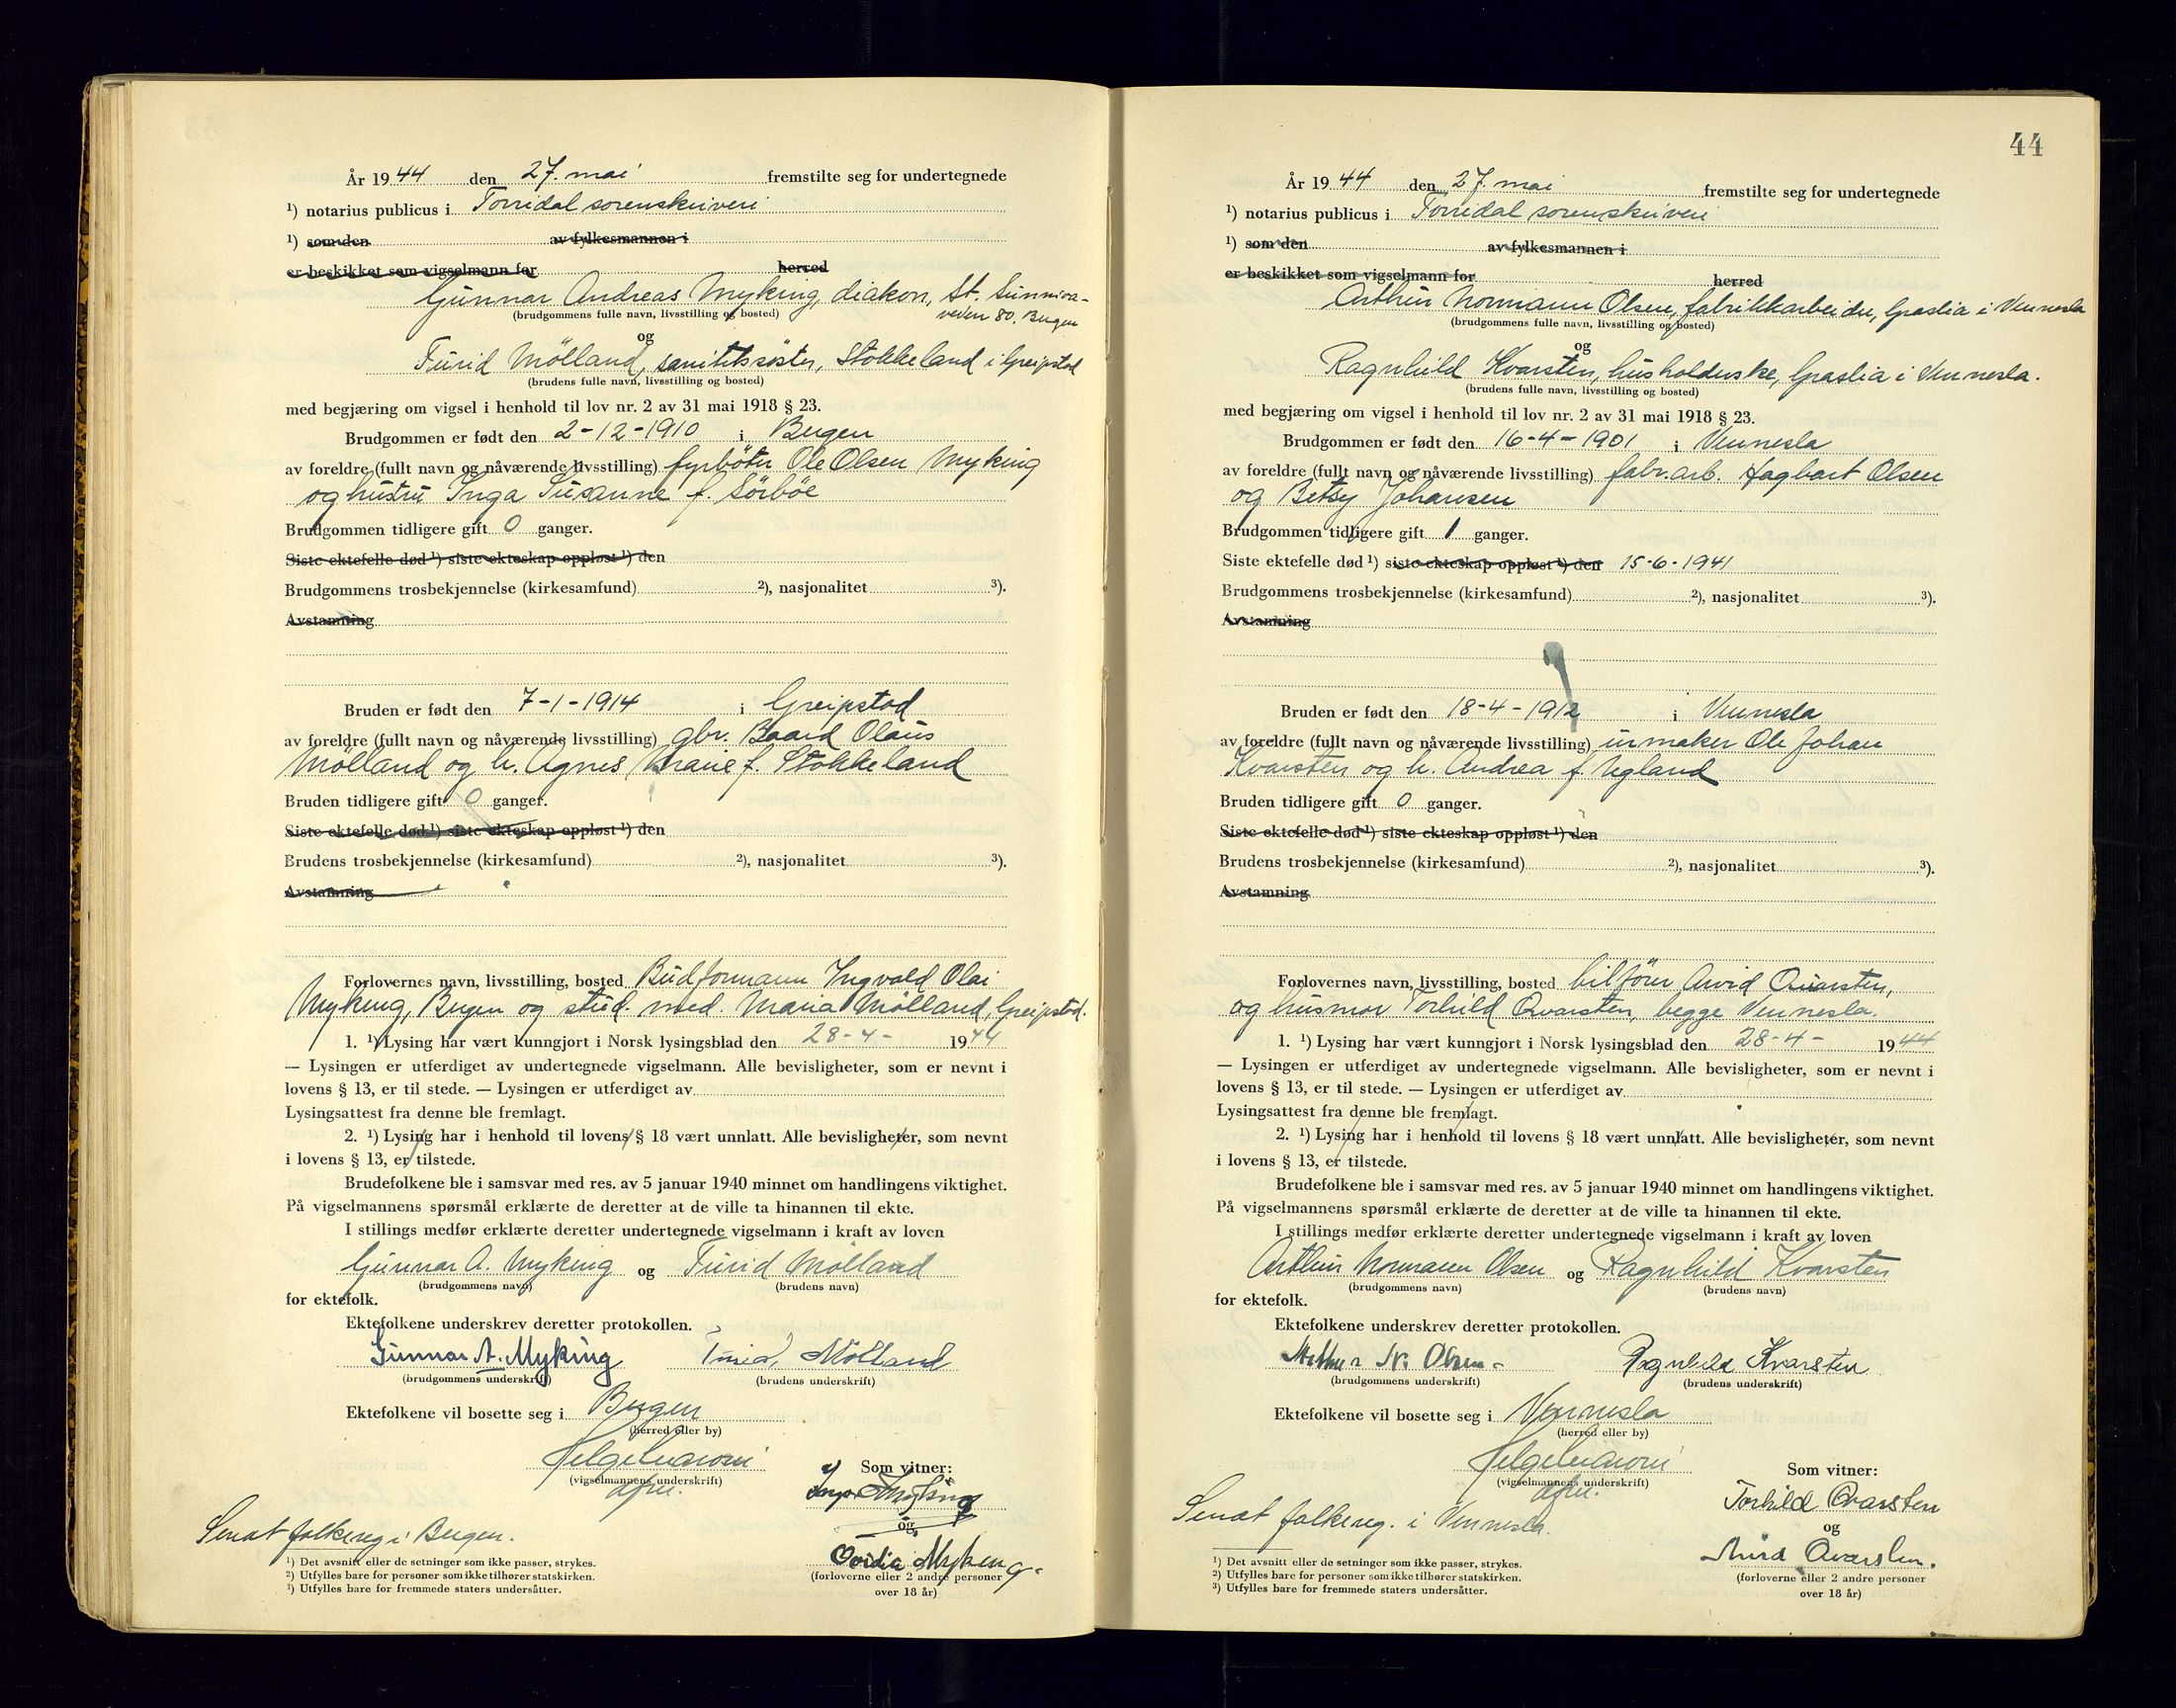 År 1944 den 27. mai fremstilte seg for undertegnede
¹) notarius publicus i Torridal sorenskriveri
¹) som den av fylkesmannen i
er beskikket som vigselmann for herred
Gunnar Andreas Myking, diakon, St. Sunniva-
veien 80, Bergen
(brudgommens fulle navn, livsstilling og bosted)
og
Turid Mölland, sanitetssöster, Stokkeland i Greipstad
(brudens fulle navn, livsstilling og bosted)
med begjæring om vigsel i henhold til lov nr. 2 av 31 mai 1918 § 23.
Brudgommen er født den 2-12-1910 i Bergen
av foreldre (fullt navn og nåværende livsstilling) fyrböter Ole Olsen Myking
og hustru Inga Susanne f. Sörböe
Brudgommen tidligere gift 0 ganger.
Siste ektefelle død ¹) siste ekteskap oppløst ¹) den
Brudgommens trosbekjennelse (kirkesamfund) ²), nasjonalitet ³).
Avstamning
Bruden er født den 7-1-1914 i Greipstad
av foreldre (fullt navn og nåværende livsstilling) gbr. Baard Olaus
Mölland og h. Agnes Marie f. Stokkeland
Bruden tidligere gift 0 ganger.
Siste ektefelle død ¹) siste ekteskap oppløst ¹) den
Brudens trosbekjennelse (kirkesamfund) ²), nasjonalitet ³).
Avstamning
Forlovernes navn, livsstilling, bosted Budformann Ingvald Olai
Myking, Bergen og stud. med. Maria Mölland, Greipstad.
1. ¹) Lysing har vært kunngjort i Norsk lysingsblad den 28-4- 1944
— Lysingen er utferdiget av undertegnede vigselmann. Alle bevisligheter, som er nevnt i
lovens § 13, er til stede. — Lysingen er utferdiget av
Lysingsattest fra denne ble fremlagt.
2. ¹) Lysing har i henhold til lovens § 18 vært unnlatt. Alle bevisligheter, som nevnt
i lovens § 13, er tilstede.
Brudefolkene ble i samsvar med res. av 5 januar 1940 minnet om handlingens viktighet.
På vigselmannens spørsmål erklærte de deretter at de ville ta hinannen til ekte.
I stillings medfør erklærte deretter undertegnede vigselmann i kraft av loven
Gunnar A. Myking og Turid Mölland
(brudgommens navn) (brudens navn)
for ektefolk.
Ektefolkene underskrev deretter protokollen.
Gunnar A. Myking Turid Mölland
(brudgommens underskrift) (brudens underskrift)
Ektefolkene vil bosette seg i Bergen
(herred eller by)
(vigselmannens underskrift)
Som vitner:
Myking
og
Myking
(forloverne eller 2 andre personer
over 18 år)
Sendt folkereg i Bergen.
¹) Det avsnitt eller de setninger som ikke passer, strykes.
²) Utfylles bare for personer som ikke tilhører statskirken.
³) Utfylles bare for fremmede staters undersåtter.
44
År 1944 den 27. mai fremstilte seg for undertegnede
¹) notarius publicus i Torridal sorenskriveri
¹) som den av fylkesmannen i
er beskikket som vigselmann for herred
Arthur Normann Olsen, fabrikkarbeider, Graslia i Vennesla
(brudgommens fulle navn, livsstilling og bosted)
og
Ragnhild Kvarsten, husholderske, Graslia i Vennesla.
(brudens fulle navn, livsstilling og bosted)
med begjæring om vigsel i henhold til lov nr. 2 av 31 mai 1918 § 23.
Brudgommen er født den 16-4-1901 i Vennesla
av foreldre (fullt navn og nåværende livsstilling) fabr.arb. Hagbart Olsen
og Betsy Johansen
Brudgommen tidligere gift 1 ganger.
Siste ektefelle død ¹) siste ekteskap oppløst ¹) den 15-6-1941
Brudgommens trosbekjennelse (kirkesamfund) ²), nasjonalitet ³).
Avstamning
Bruden er født den 18-4-1912 i Vennesla
av foreldre (fullt navn og nåværende livsstilling) urmaker Ole Johan
Kvarsten og h. Andrea f. Ugland
Bruden tidligere gift 0 ganger.
Siste ektefelle død ¹) siste ekteskap oppløst ¹) den
Brudens trosbekjennelse (kirkesamfund) ²), nasjonalitet ³).
Avstamning
Forlovernes navn, livsstilling, bosted bilförer Arvid Qvarsten,
og husmor Torhild Qvarsten, begge Vennesla.
1. ¹) Lysing har vært kunngjort i Norsk lysingsblad den 28-4- 1944
— Lysingen er utferdiget av undertegnede vigselmann. Alle bevisligheter, som er nevnt i
lovens § 13, er til stede. — Lysingen er utferdiget av
Lysingsattest fra denne ble fremlagt.
2. ¹) Lysing har i henhold til lovens § 18 vært unnlatt. Alle bevisligheter, som nevnt
i lovens § 13, er tilstede.
Brudefolkene ble i samsvar med res. av 5 januar 1940 minnet om handlingens viktighet.
På vigselmannens spørsmål erklærte de deretter at de ville ta hinannen til ekte.
I stillings medfør erklærte deretter undertegnede vigselmann i kraft av loven
Arthur Normann Olsen og Ragnhild Kvarsten
(brudgommens navn) (brudens navn)
for ektefolk.
Ektefolkene underskrev deretter protokollen.
Arthur N. Olsen Ragnhild Kvarsten
(brudgommens underskrift) (brudens underskrift)
Ektefolkene vil bosette seg i Vennesla
(herred eller by)
(vigselmannens underskrift)
Som vitner:
Torhild Qvarsten
og
Arvid Qvarsten.
(forloverne eller 2 andre personer
over 18 år)
Sendt folkereg. i Vennesla.
¹) Det avsnitt eller de setninger som ikke passer, strykes.
²) Utfylles bare for personer som ikke tilhører statskirken.
³) Utfylles bare for fremmede staters undersåtter.